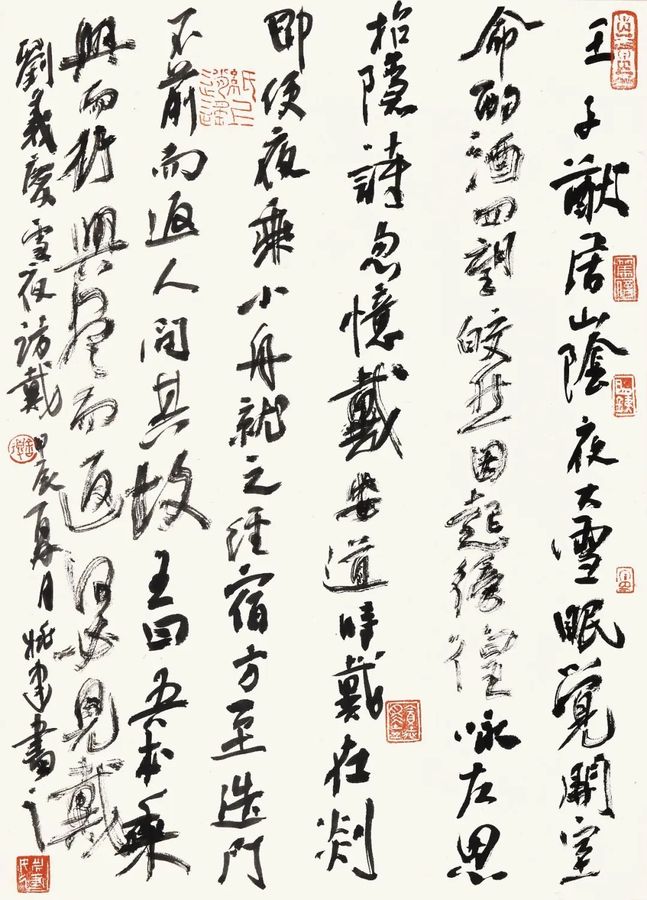 王子猷居山陰夜大雪眠覺開室
命酌酒四望皎然因起徬徨咏左思
招隱詩忽憶戴安道時戴在剡
即便夜乘小舟就之經宿方至造門
不前而返人問其故王曰吾本乘
興而行興盡而返何必見戴
劉義慶雪夜訪戴 甲辰夏月 建書